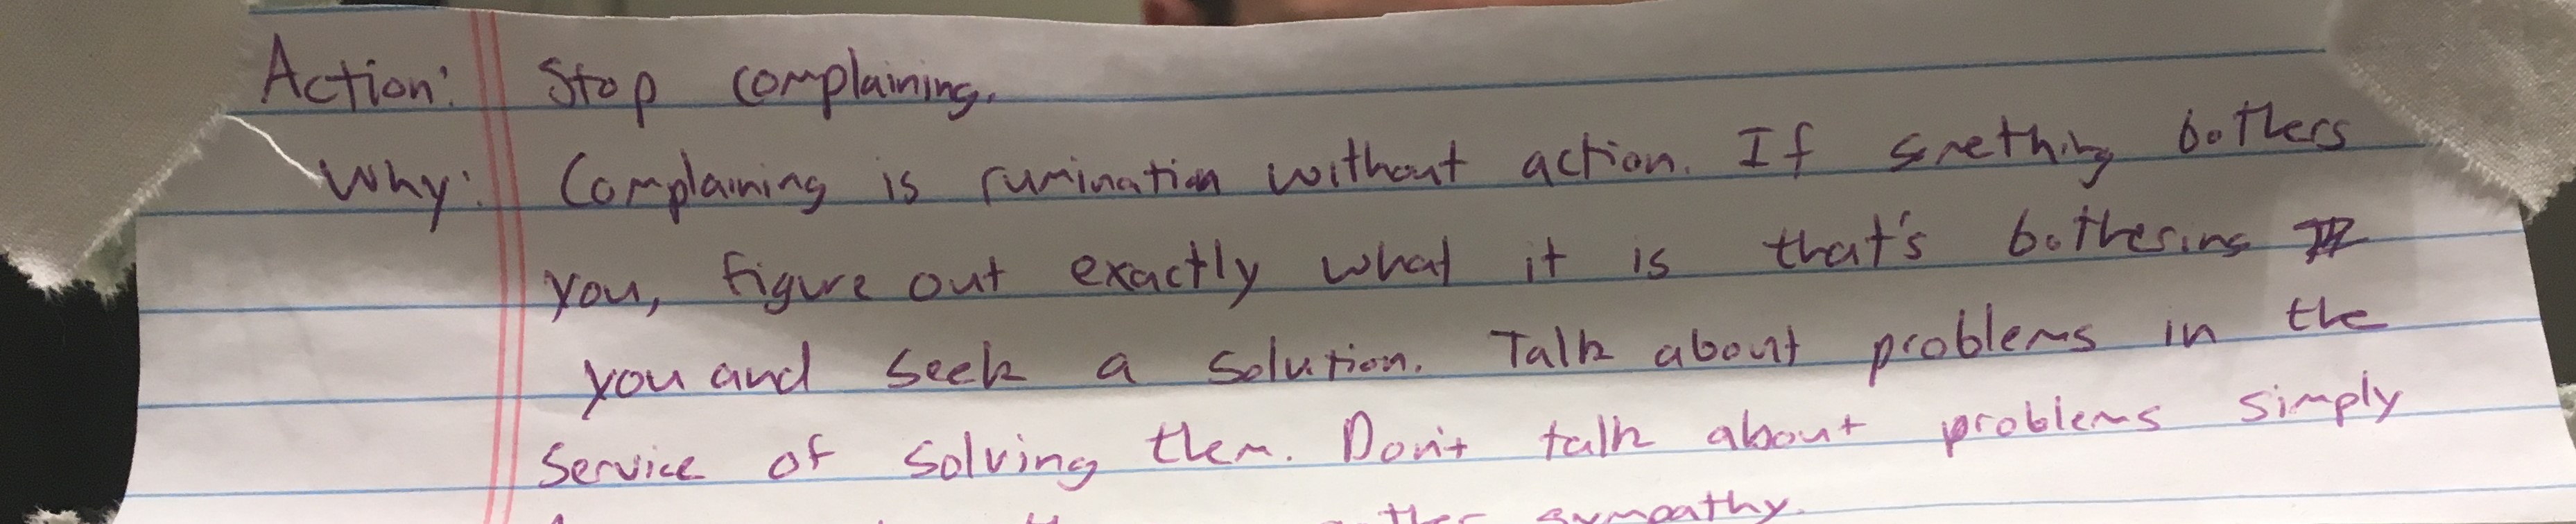 Action: Stop complaining.
Why: Complaining is rumination without action. If something bothers
you, figure out exactly what it is that's bothering
you and seek a solution. Talk about problems in the
service of solving them. Don't talk about problems simply
sympathy.